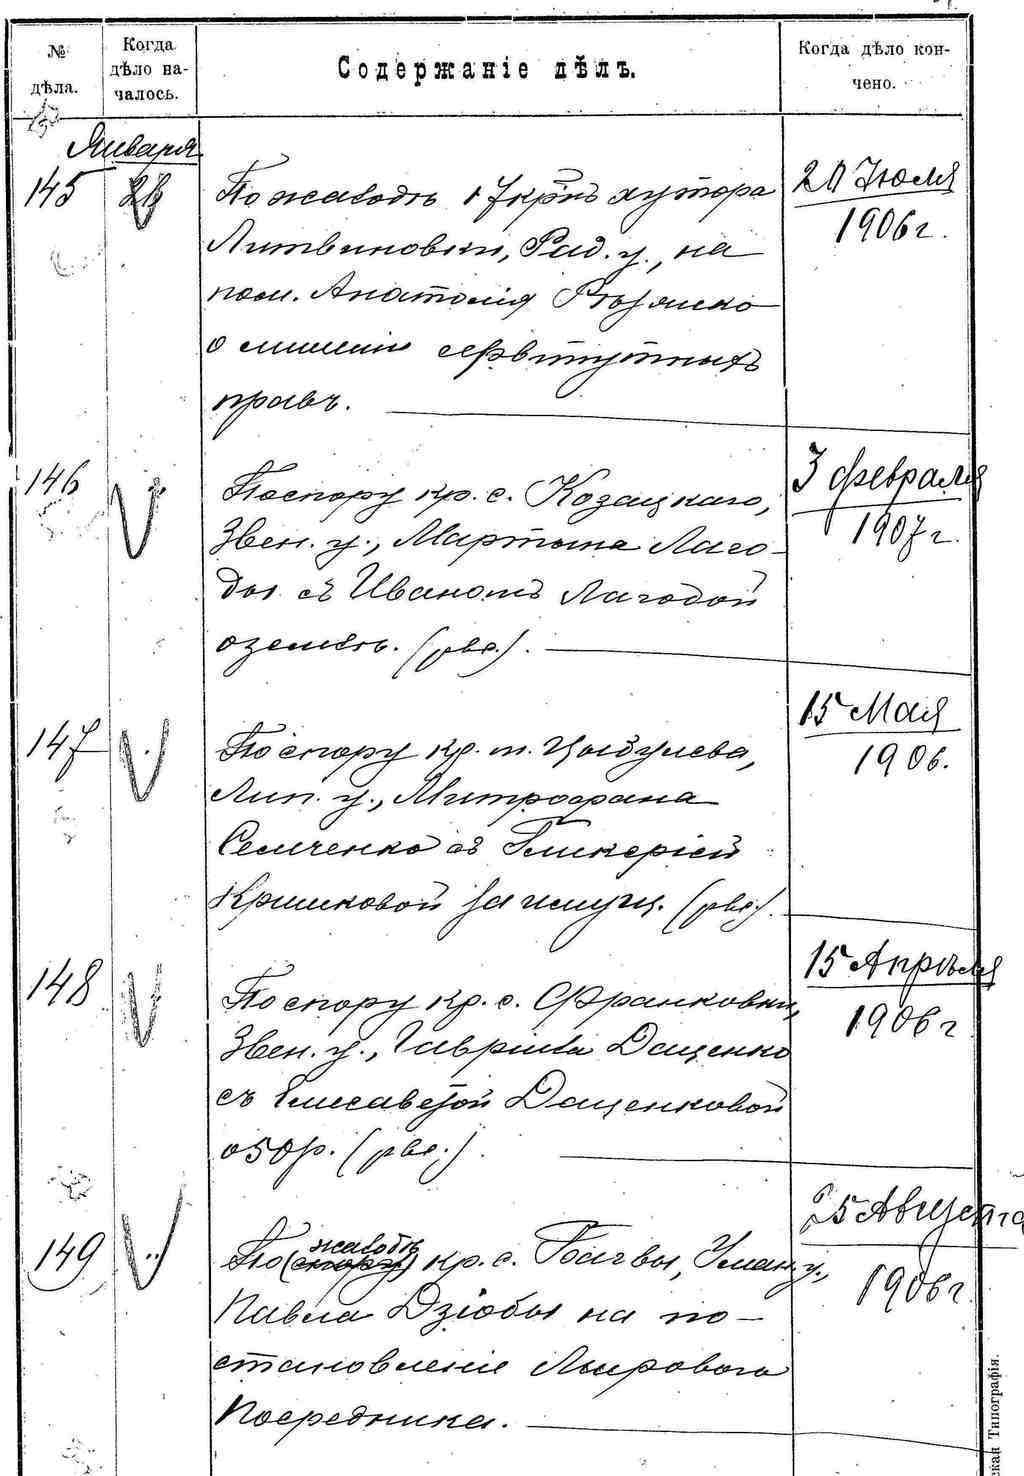 № дѣла.
Когда дѣло началось.
Содержаніе дѣлъ.
Когда дѣло кончено.
Января
145
По жалобѣ кр. хутора
Литвиновки, Рад. у., на
пом. Анатолія
о лишеніи сервитутныхъ
правъ.
20 Іюля
1906 г.
146
По спору кр. с. Козацкаго,
Звен. у., Мартына Лаго-
ды съ Иваномъ Лагодой
о землѣ. (рвс.).
3 Февраля
1907 г.
147
По спору кр. м. Цыбулева,
Лип. у., Митрофана
Семченко съ Гликеріей
Кришковой за имущ. (рвс.).
15 Мая
1906.
148
По спору кр. с. Франковки,
Звен. у., Гавріила Даценко
съ Елисаветой Даценковой
(рвс.).
15 Апрѣля
1906 г
149
По (спору) жалобѣ кр. с. Багвы, Уман. у.,
Павла Дзюбы на по-
становленіе Мирового
Посредника.
25 Августа
1906 г.
ская Типографія.